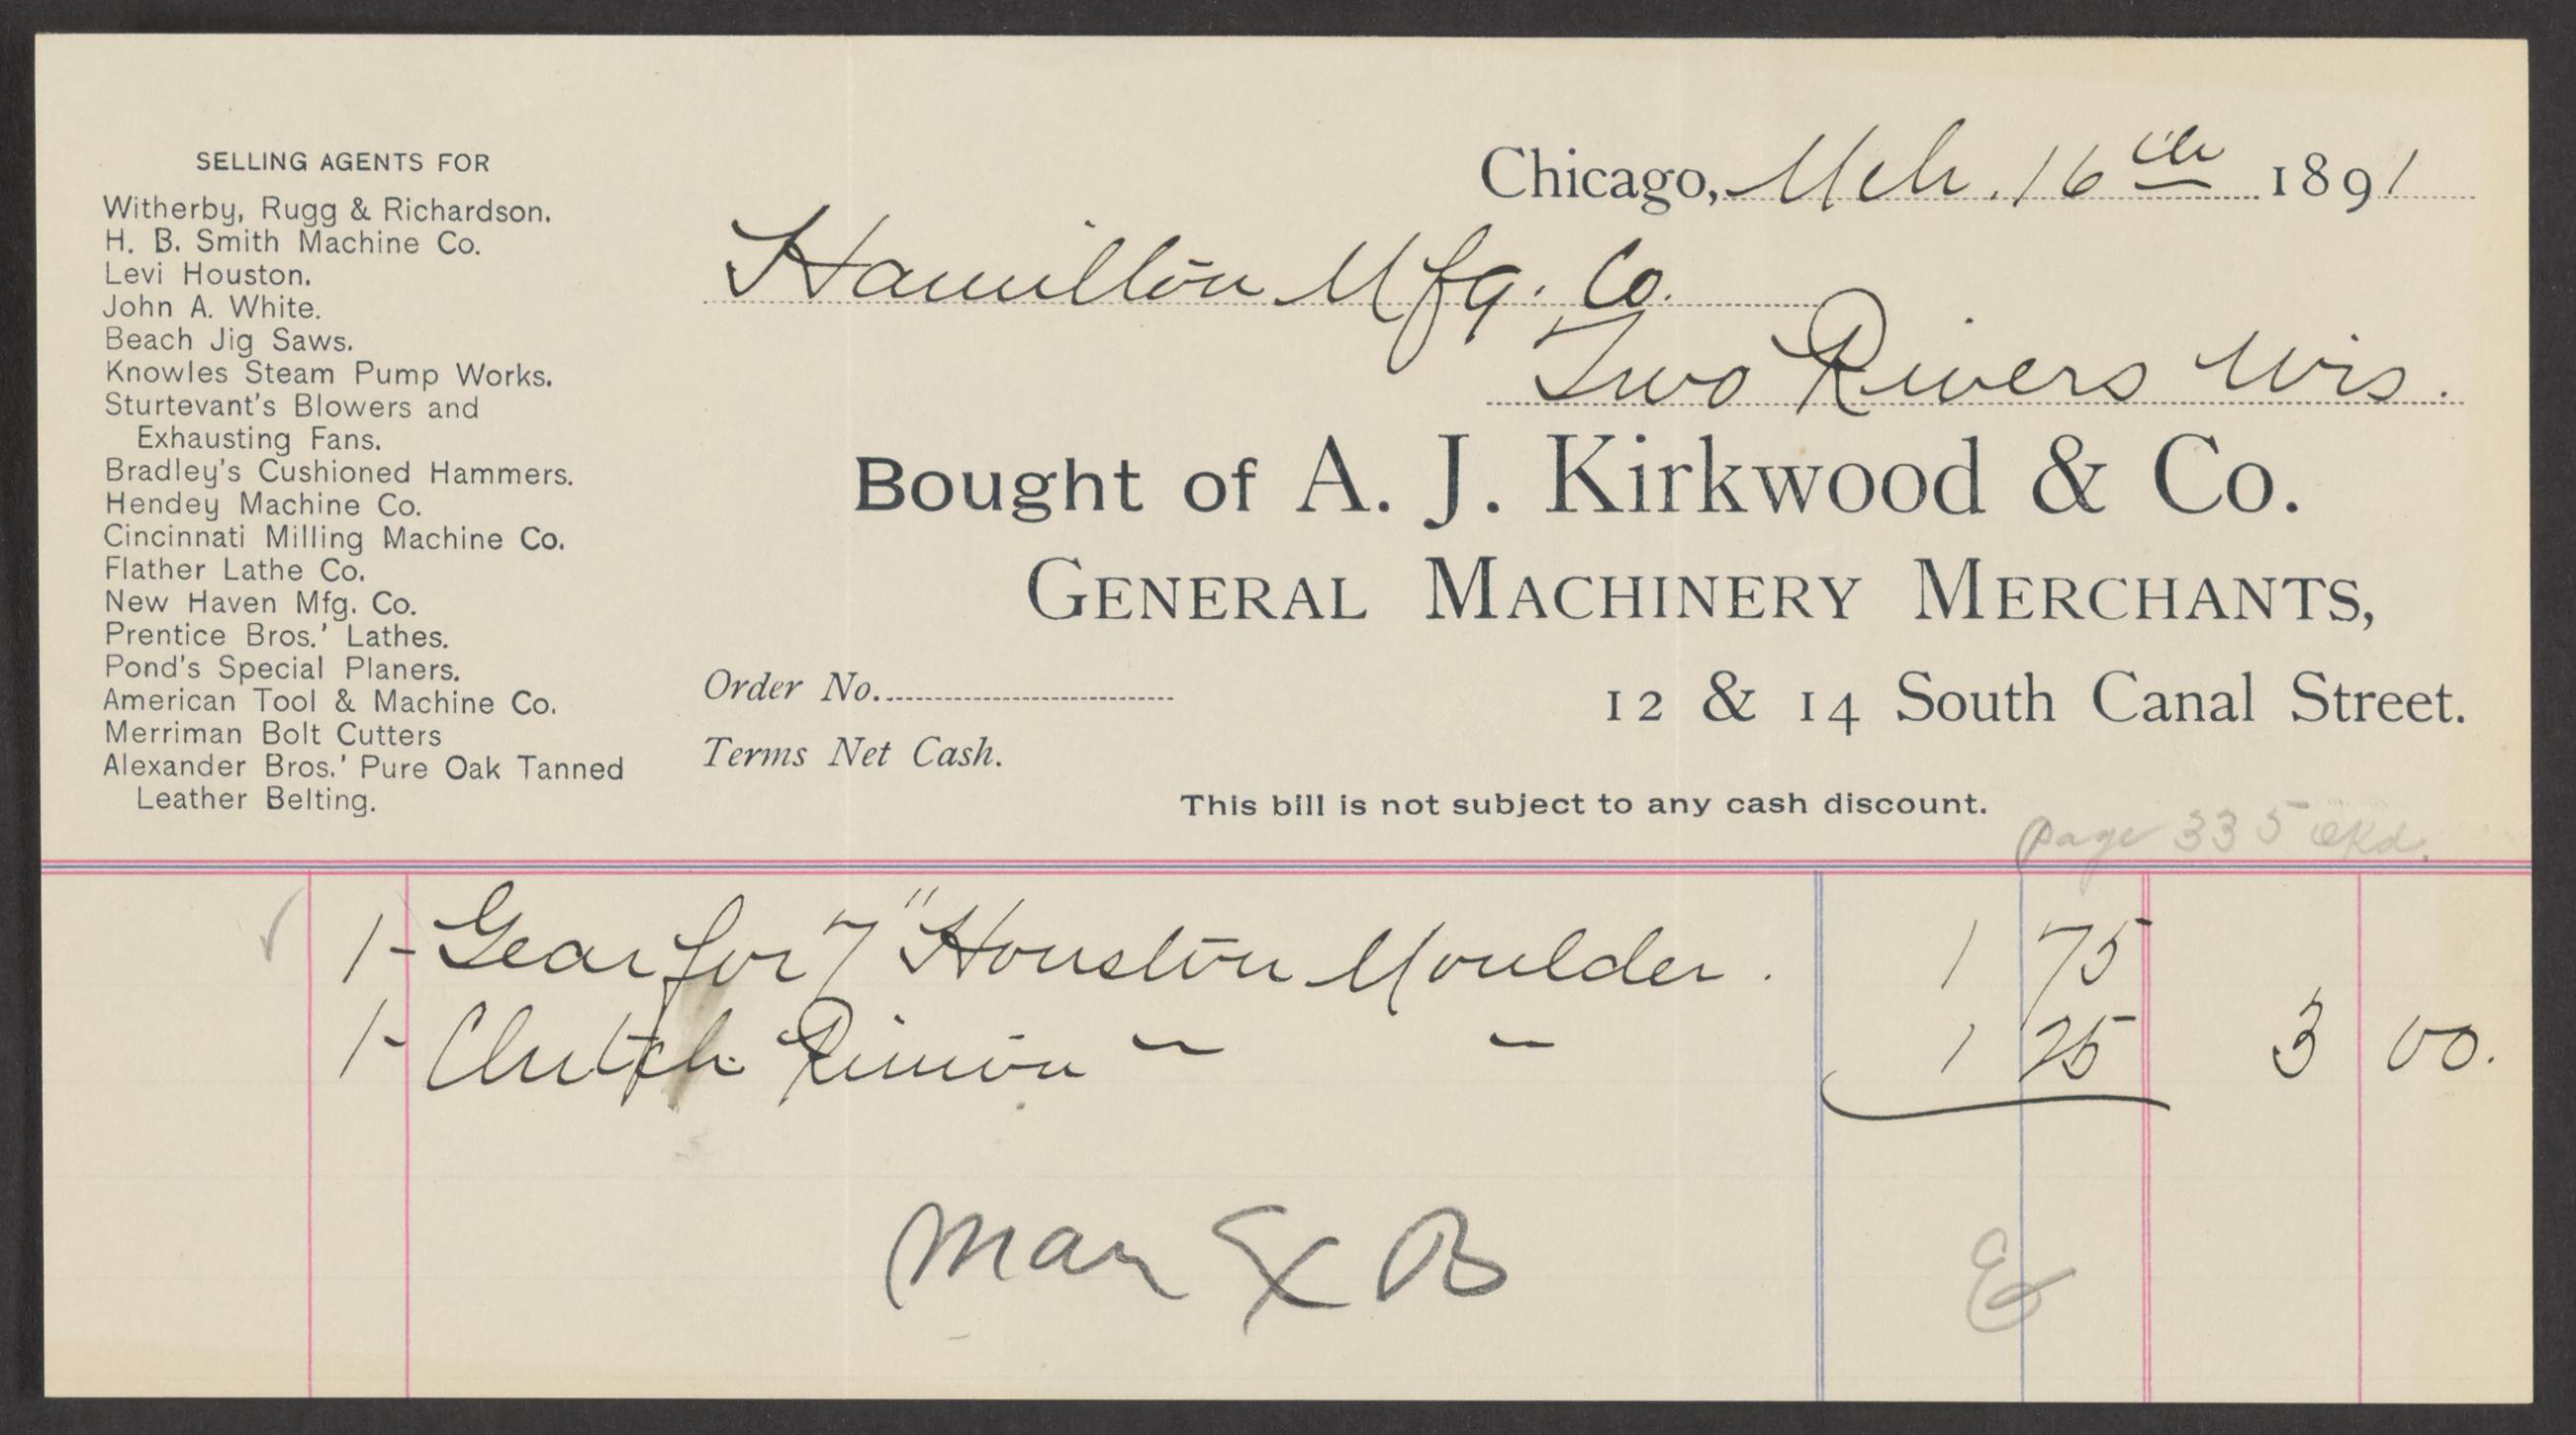 SELLING AGENTS FOR
Witherby, Rugg & Richardson.
H. B. Smith Machine Co.
Levi Houston.
John A. White.
Beach Jig Saws.
Knowles Steam Pump Works.
Sturtevant's Blowers and
Exhausting Fans.
Bradley's Cushioned Hammers.
Hendey Machine Co.
Cincinnati Milling Machine Co.
Flather Lathe Co.
New Haven Mfg. Co.
Prentice Bros.' Lathes.
Pond's Special Planers.
American Tool & Machine Co.
Merriman Bolt Cutters
Alexander Bros.' Pure Oak Tanned
Leather Belting.
Chicago, Mch. 16th 1891
Hamilton Mfg. Co.
Two Rivers Wis.
Bought of A. J. Kirkwood & Co.
GENERAL MACHINERY MERCHANTS,
12 & 14 South Canal Street.
Order No.
Terms Net Cash.
This bill is not subject to any cash discount.
page 335
1- Gear for 7" Houston Moulder. 1 75
1- Clutch Pinion " " 1 25 3 00.
Mar Ex B